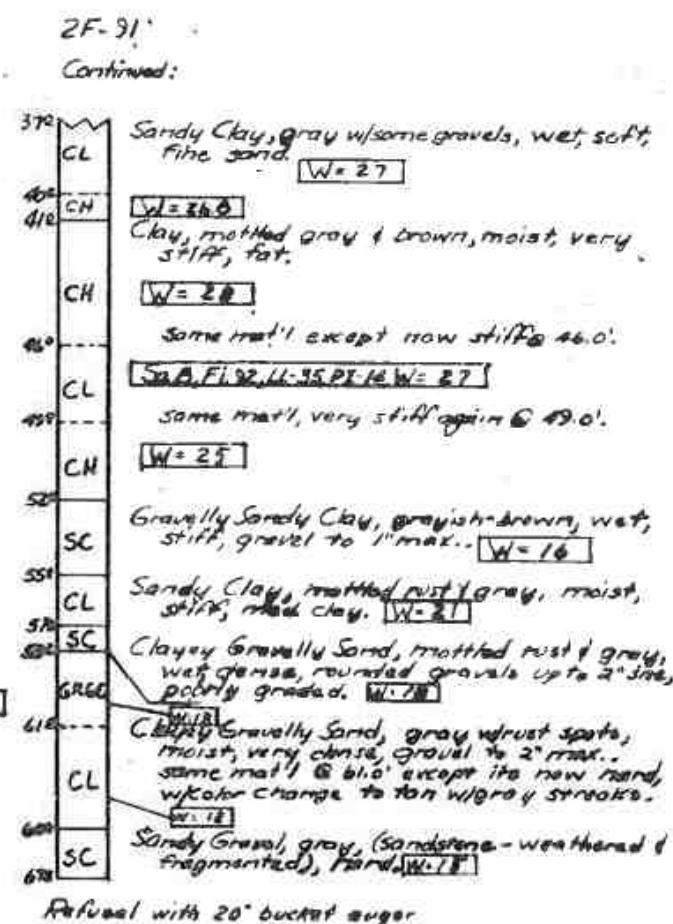 2F-91
Continued:
37.0
CL
Sandy Clay, gray w/some gravels, wet, soft,
fine sand.
W= 27
40.0
CH
W=26.8
41.0
Clay, mottled gray & brown, moist, very
stiff, fat.
CH
W=
same mat'l except now stiff @ 46.0'.
46.0
CL
Sa 8, Fi 92, LL-35, PI-16 W= 27
same mat'l, very stiff again @ 49.0'.
49.0
CH
W= 25
52.0
Gravelly Sandy Clay, grayish-brown, wet,
stiff, gravel to 1" max..
W= 16
SC
55.0
Sandy Clay, mottled rust & gray, moist,
stiff, med clay.
W=21
CL
57.0
SC
Clayey Gravelly Sand, mottled rust & gray,
wet, dense, rounded gravels up to 2" size,
poorly graded.
W=18
W=18
61.0
Clayey Gravelly Sand, gray w/rust spots,
moist, very dense, gravel to 2" max..
same mat'l @ 61.0' except its now hard,
w/color change to tan w/gray streaks.
CL
W=18
Sandy Gravel, gray, (sandstone - weathered &
fragmented), hard.
SC
Refusal with 20" bucket auger